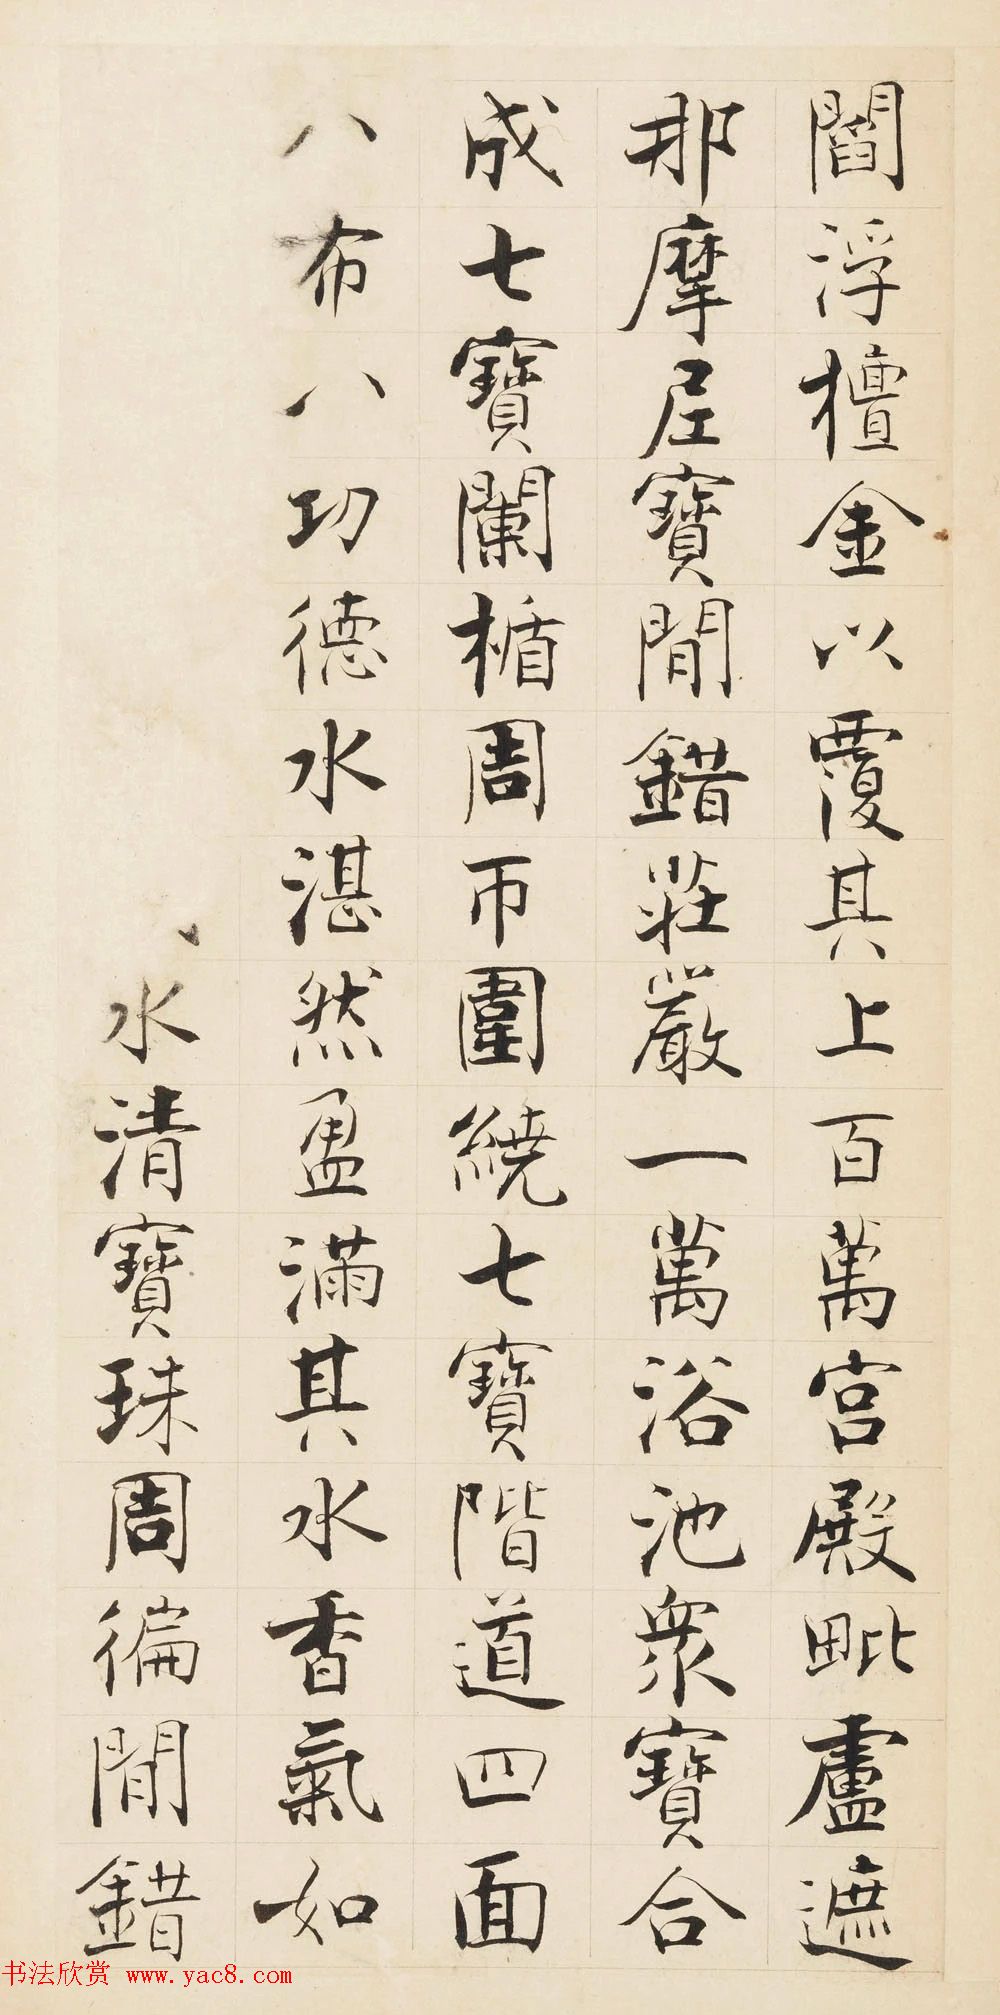 閻浮檀金以覆其上百萬宮殿毗盧遮
那摩尼寶閒錯莊嚴一萬浴池眾寶合
成七寶闌楯周帀圍繞七寶階道四面
布八功德水湛然盈滿其水香氣如
水清寶珠周徧閒錯
书法欣赏 www.yac8.com